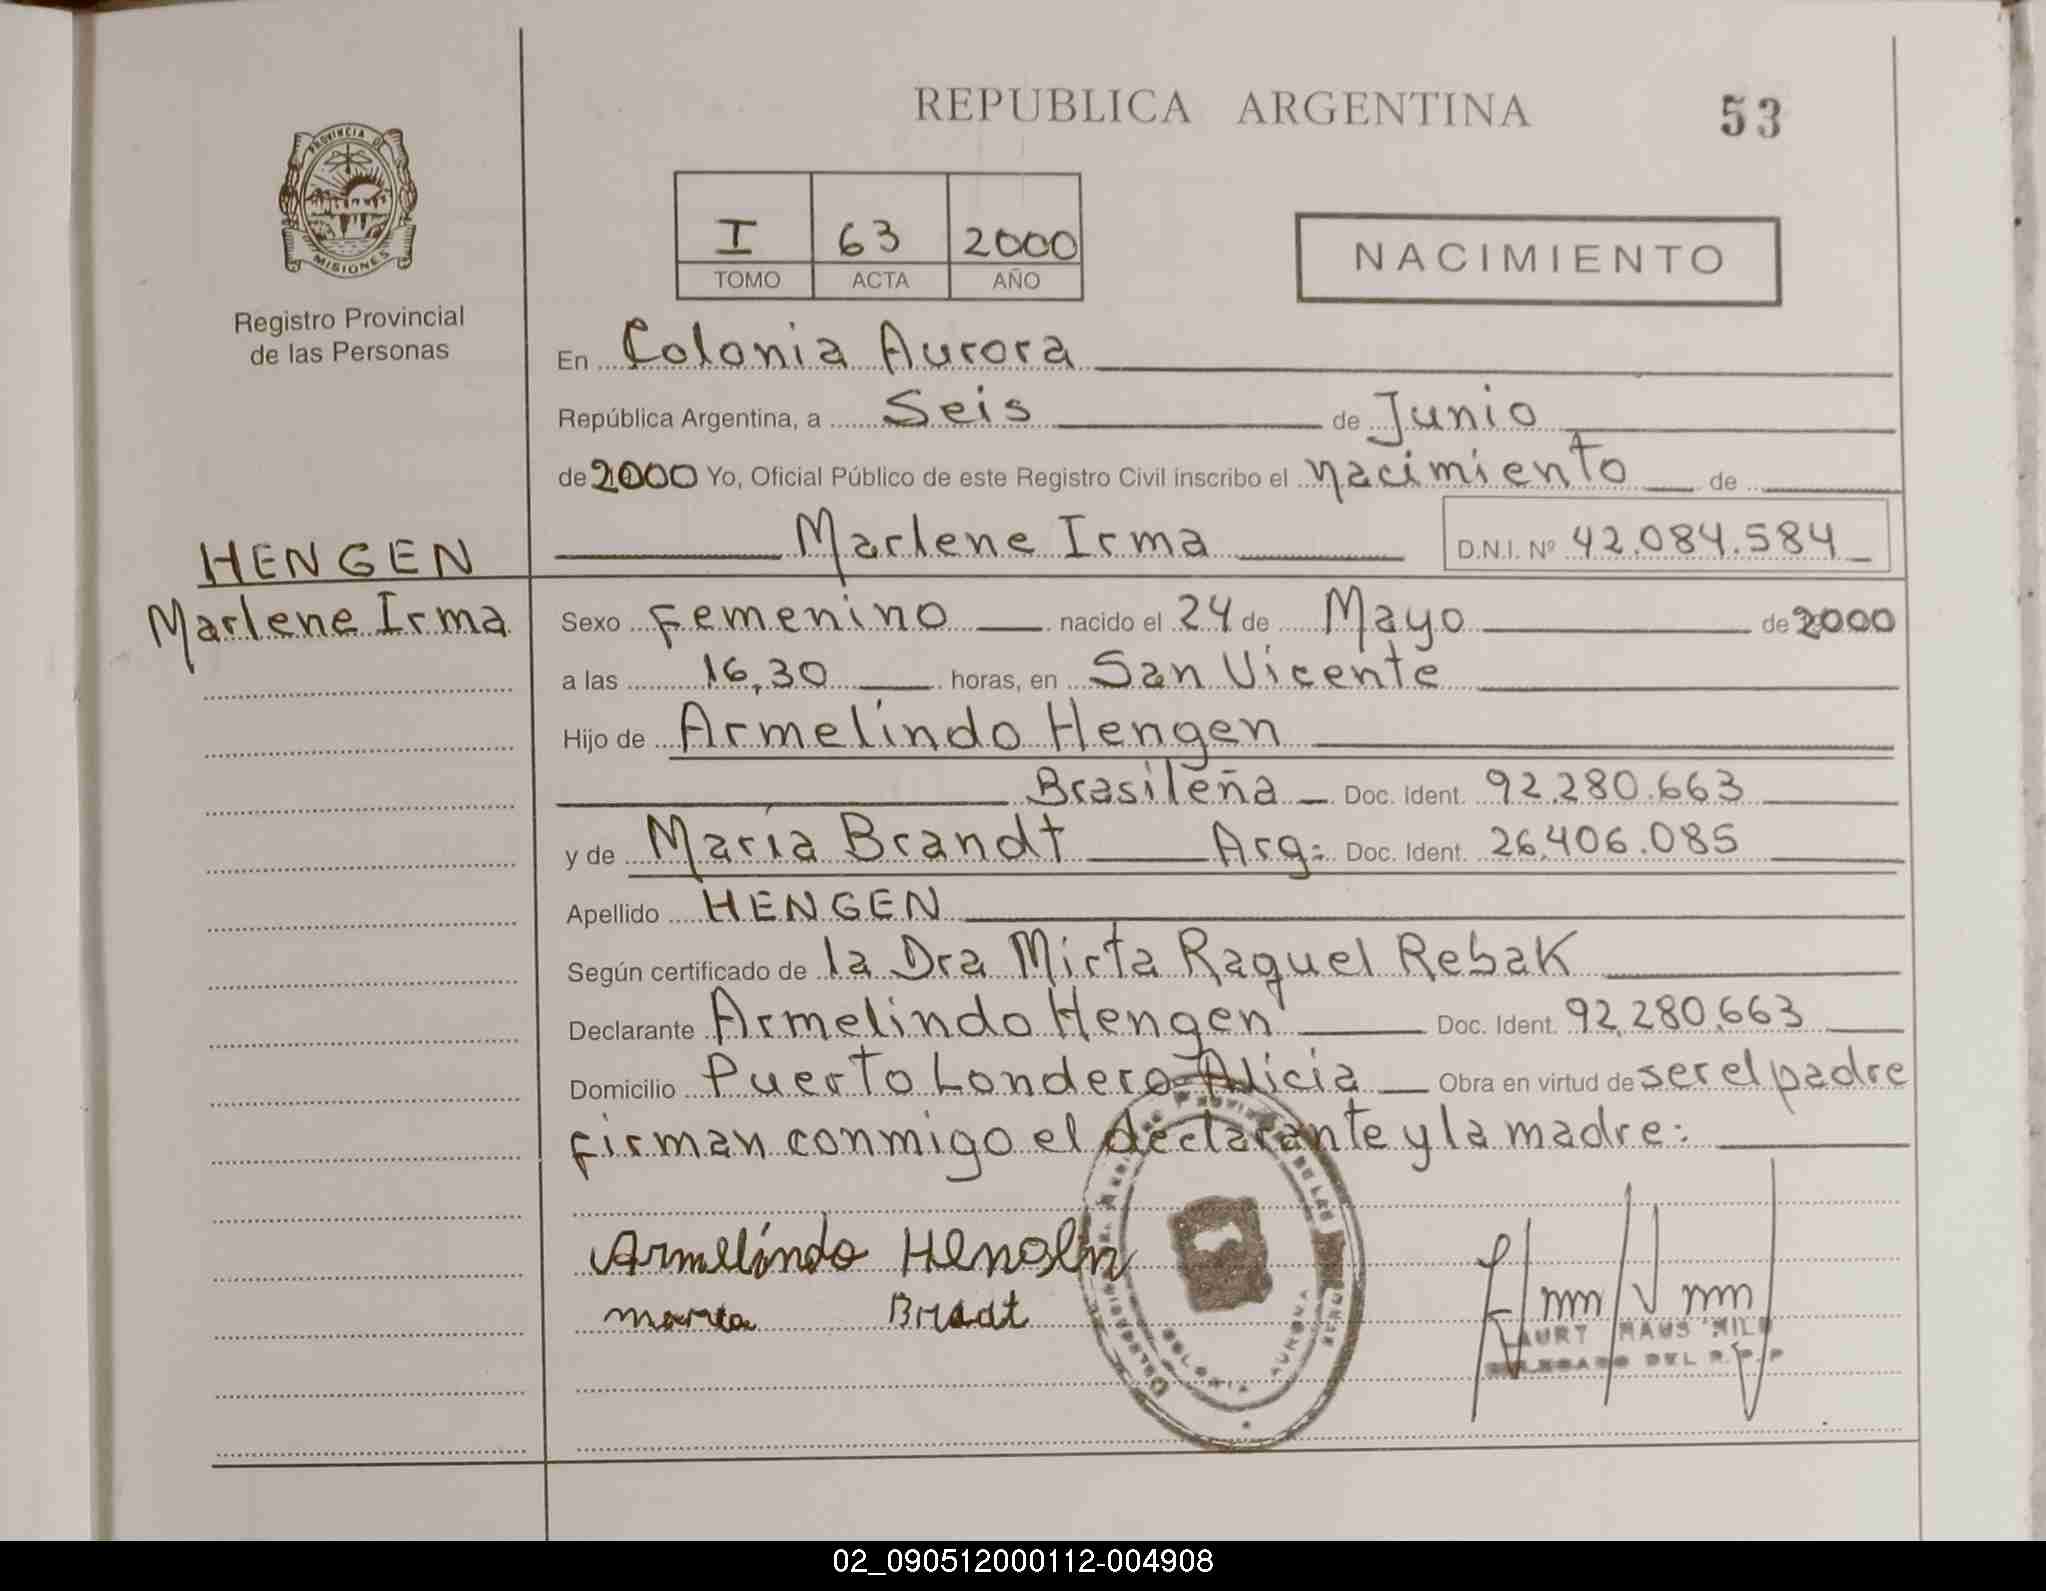 REPUBLICA ARGENTINA
53
PROVINCIA DE
MISIONES
Registro Provincial
de las Personas
I 63 2000
TOMO ACTA AÑO
NACIMIENTO
En Colonia Aurora
República Argentina, a Seis de Junio
de 2000 Yo, Oficial Público de este Registro Civil inscribo el nacimiento de
Marlene Irma D.N.I. Nº 42.084.584
HENGEN
Marlene Irma
Sexo Femenino nacido el 24 de Mayo de 2000
a las 16,30 horas, en San Vicente
Hijo de Armelindo Hengen
Brasileña Doc. Ident. 92.280.663
y de María Brandt Arg: Doc. Ident. 26.406.085
Apellido HENGEN
Según certificado de la Dra Mirta Raquel Rebak
Declarante Armelindo Hengen Doc. Ident. 92,280,663
Domicilio Puerto Londero-Alicia Obra en virtud de ser el padre
firman conmigo el declarante y la madre:
Armelíndo Hengen
maria
COLONIA AURORA
DELEGADO DEL R.P.P
02_090512000112-004908